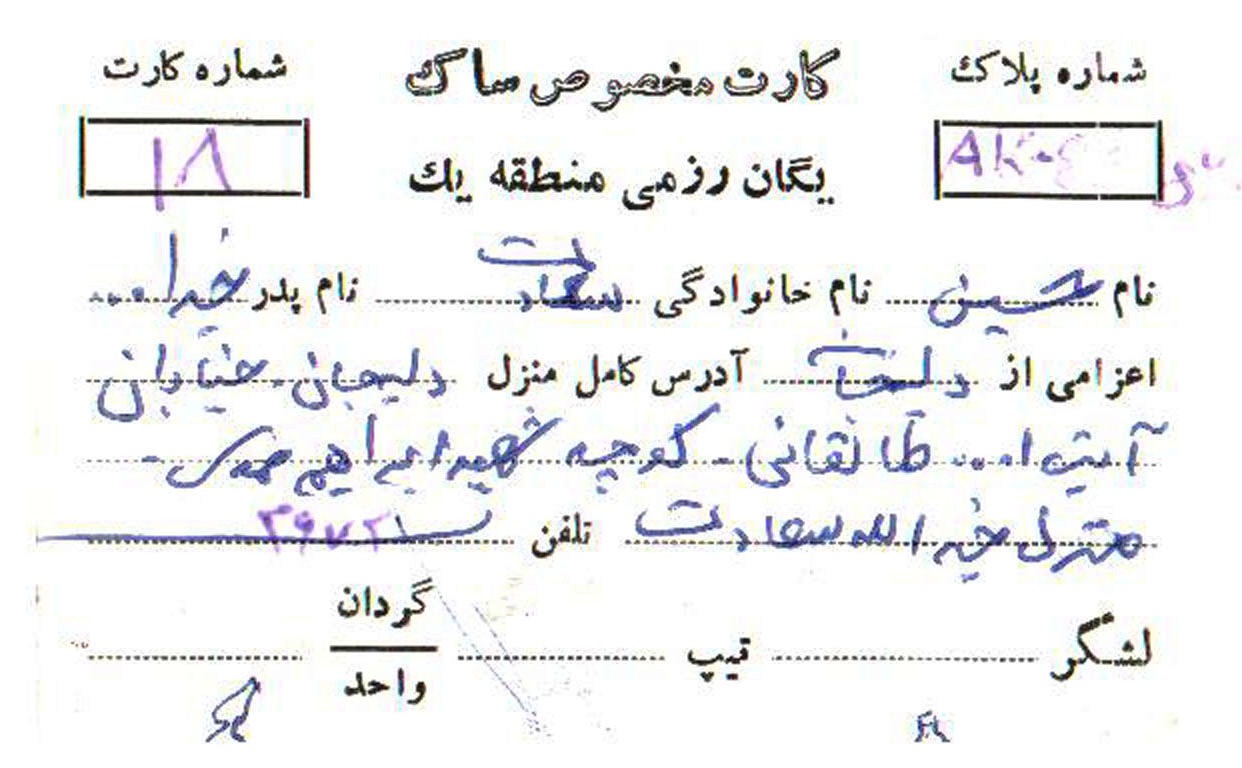 شماره پلاک کارت مخصوص ساک شماره کارت
AK یگان رزمی منطقه یک ۱۸
نام حسین نام خانوادگی سعادت نام پدر خدا...
اعزامی از دلیجان آدرس کامل منزل دلیجان - خیابان
آیت ا... طالقانی - کوچه شهید ابراهیم
منزل سعادت تلفن
لشگر تیپ گردان
واحد